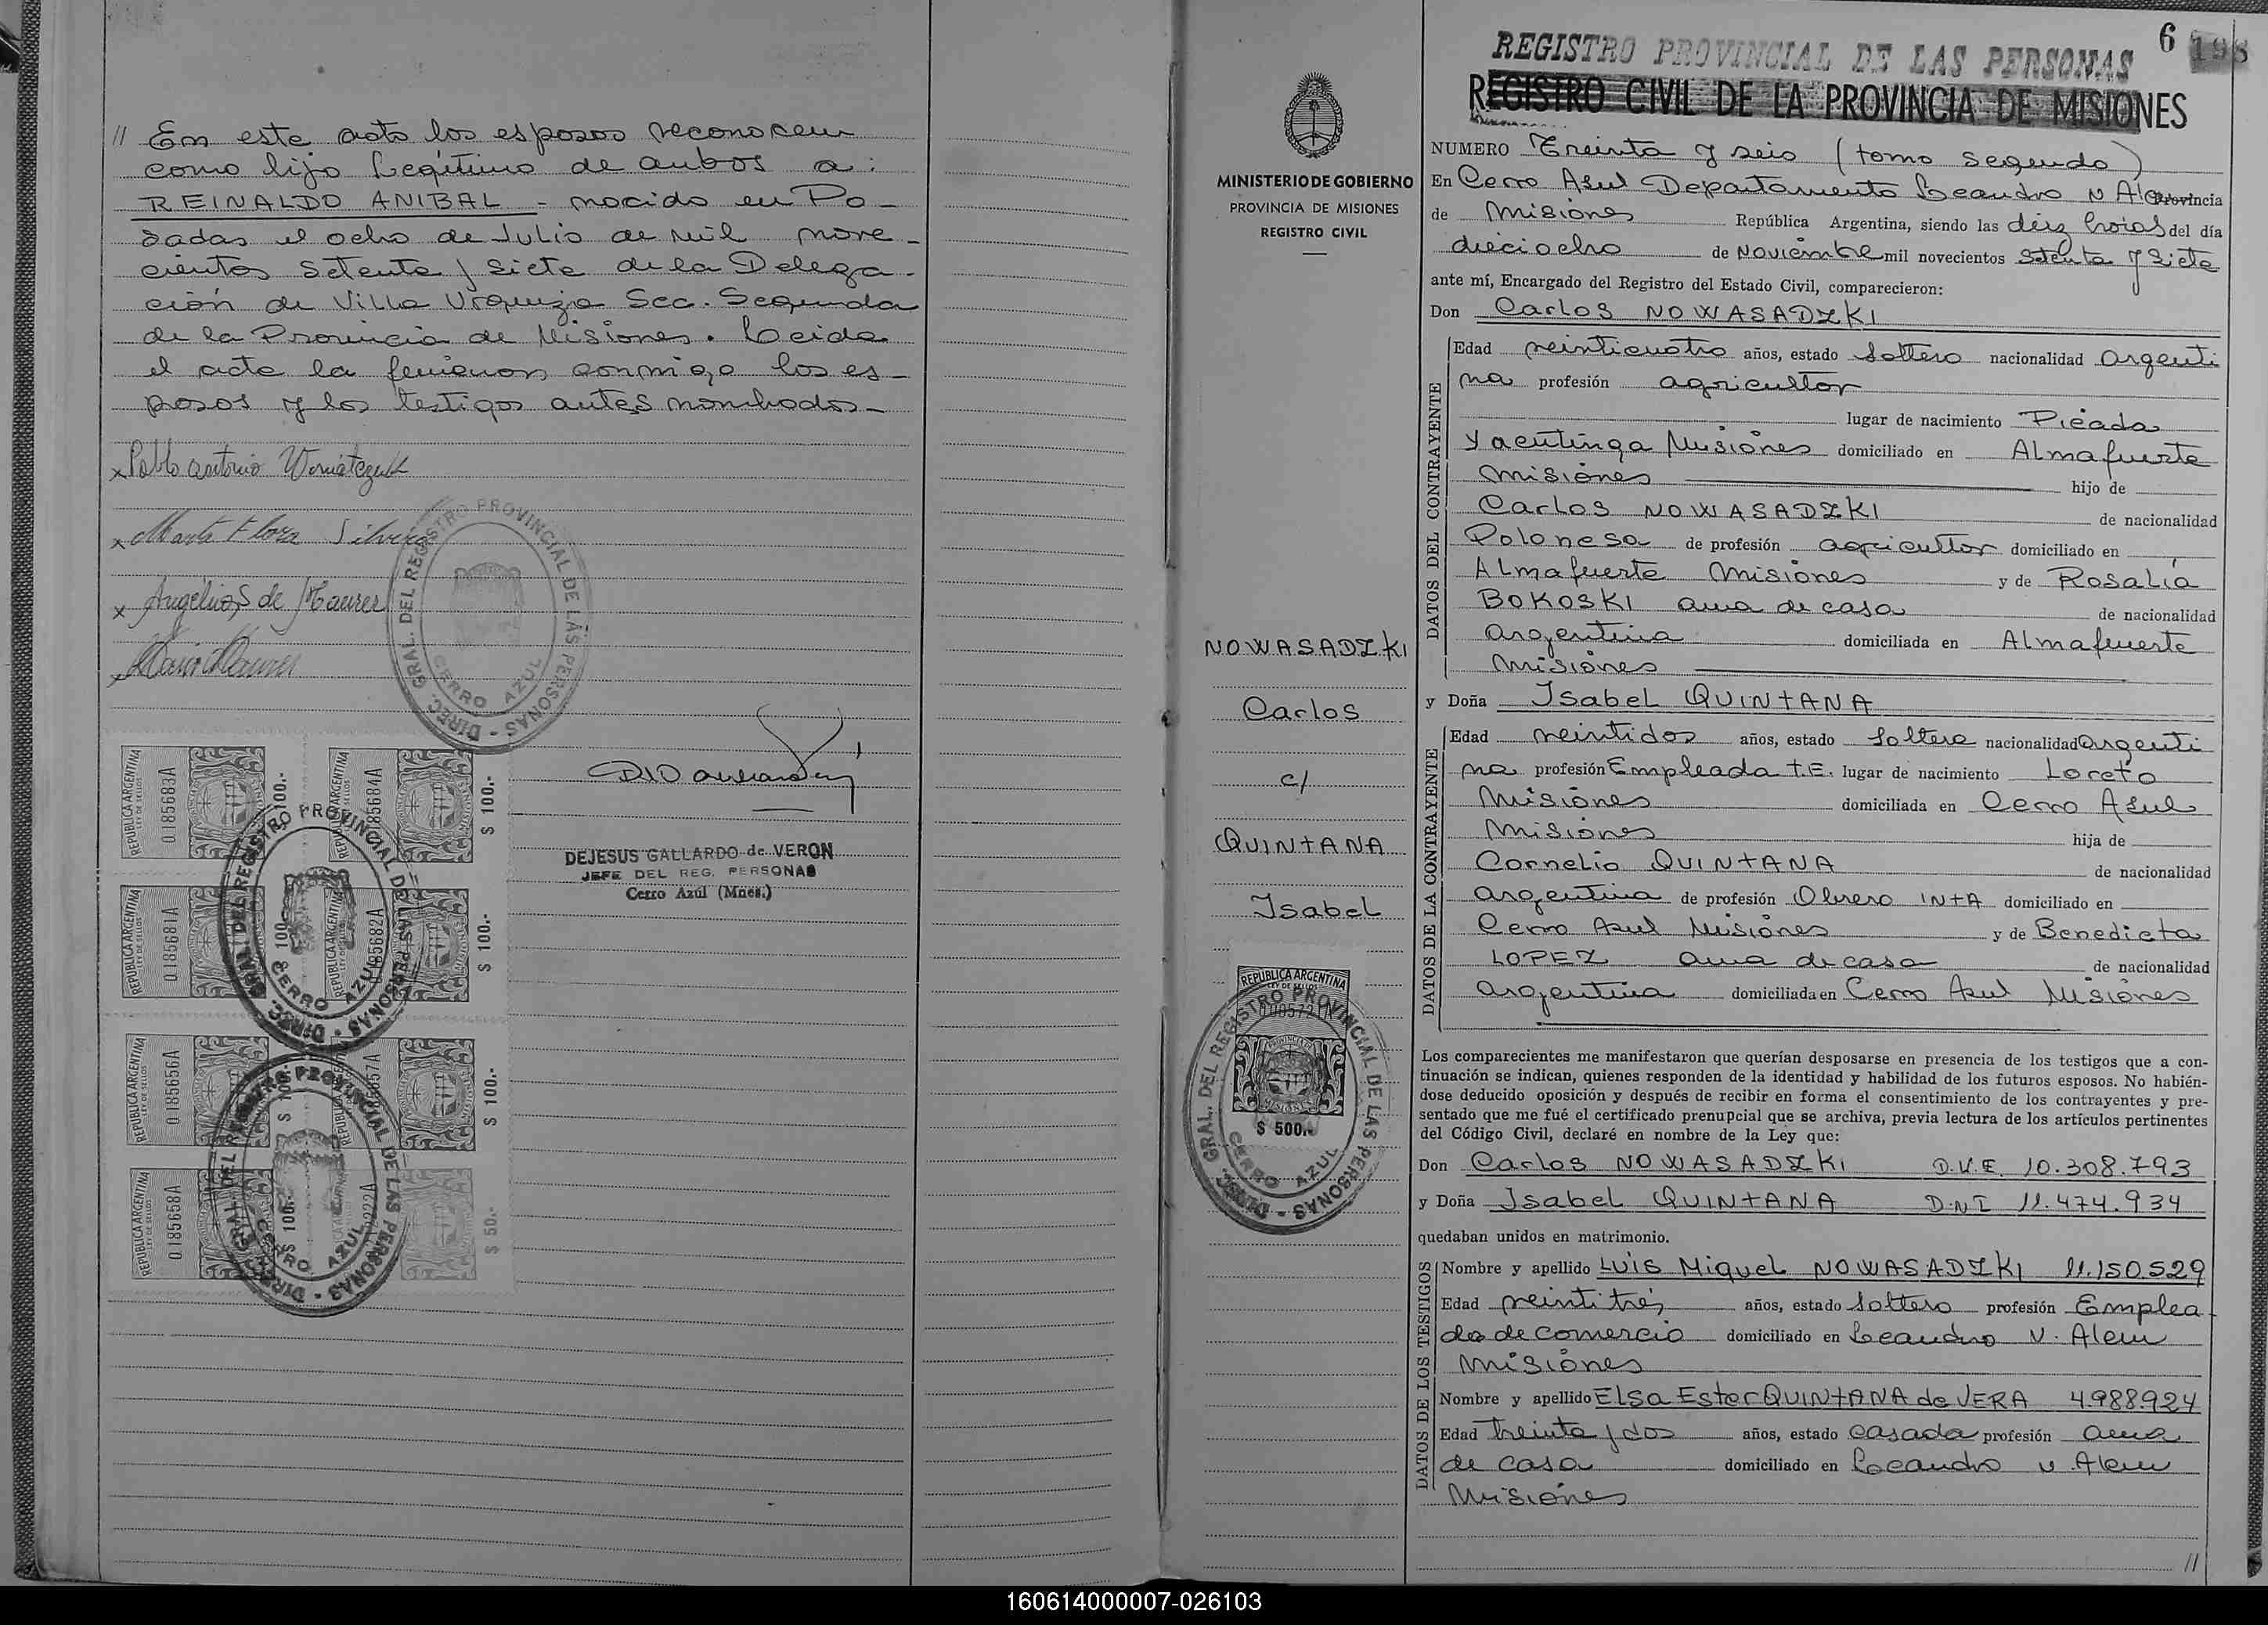 // En este acto los esposos reconocen
como hijo Legítimo de ambos a:
REINALDO ANIBAL - nacido en Po-
sadas el ocho de Julio de mil nove-
cientos setenta y siete de la Delega-
ción de Villa Urquiza Sec. Segunda
de la Provincia de Misiones. Leida
el acta la firman conmigo los es-
posos y los testigos antes nombrados-
x Pablo Antonio
x Marta Flora Silvero
x Angelica S de Maurer
x Maurer
DIREC. GRAL. DEL REGISTRO PROVINCIAL DE LAS PERSONAS -
CERRO AZUL
DEJESUS GALLARDO de VERON
JEFE DEL REG. PERSONAS
Cerro Azúl (Mnes.)
REPUBLICA ARGENTINA
LEY DE SELLOS
0.185683A
$ 100.-
REPUBLICA ARGENTINA
185684A
$ 100.-
REPUBLICA ARGENTINA
LEY DE SELLOS
0.185681A
$ 100.-
REPUBLICA ARGENTINA
185682A
$ 100.-
DIREC. GRAL. DEL REGISTRO PROVINCIAL DE LAS PERSONAS -
CERRO AZUL
REPUBLICA ARGENTINA
LEY DE SELLOS
0.185656A
$ 100.-
$ 100.-
REPUBLICA ARGENTINA
LEY DE SELLOS
0.185658A
$ 100.-
$ 50.-
DIREC. GRAL. DEL REGISTRO PROVINCIAL DE LAS PERSONAS -
CERRO AZUL
MINISTERIO DE GOBIERNO
PROVINCIA DE MISIONES
REGISTRO CIVIL
NOWASADZKI
Carlos
c/
QUINTANA
Isabel
REPUBLICA ARGENTINA
LEY DE SELLOS
MISIONES
$ 500.-
DIREC. GRAL. DEL REGISTRO PROVINCIAL DE LAS PERSONAS -
CERRO AZUL
6 198
REGISTRO PROVINCIAL DE LAS PERSONAS
REGISTRO CIVIL DE LA PROVINCIA DE MISIONES
NUMERO Treinta y seis (tomo segundo)
En Cerro Azul Departamento Leandro N Alem Provincia
de Misiones República Argentina, siendo las diez horas del día
dieciocho de Noviembre mil novecientos setenta y siete
ante mí, Encargado del Registro del Estado Civil, comparecieron:
Don Carlos NOWASADZKI
DATOS DEL CONTRAYENTE
Edad veinticuatro años, estado soltero nacionalidad argenti
na profesión agricultor
lugar de nacimiento Picada
Yacutinga Misiones domiciliado en Almafuerte
Misiones hijo de
Carlos NOWASADZKI de nacionalidad
Polonesa de profesión agricultor domiciliado en
Almafuerte Misiones y de Rosalía
BOKOSKI ama de casa de nacionalidad
argentina domiciliada en Almafuerte
Misiones
y Doña Isabel QUINTANA
DATOS DE LA CONTRAYENTE
Edad veintidos años, estado soltera nacionalidad argenti
na profesión Empleada T.E. lugar de nacimiento Loreto
Misiones domiciliada en Cerro Azul
Misiones hija de
Cornelio QUINTANA de nacionalidad
argentina de profesión Obrero INTA domiciliado en
Cerro Azul Misiones y de Benedicta
LOPEZ ama de casa de nacionalidad
argentina domiciliada en Cerro Azul Misiones
Los comparecientes me manifestaron que querían desposarse en presencia de los testigos que a con-
tinuación se indican, quienes responden de la identidad y habilidad de los futuros esposos. No habién-
dose deducido oposición y después de recibir en forma el consentimiento de los contrayentes y pre-
sentado que me fué el certificado prenupcial que se archiva, previa lectura de los artículos pertinentes
del Código Civil, declaré en nombre de la Ley que:
Don Carlos NOWASADZKI D.U.E. 10.308.793
y Doña Isabel QUINTANA D.N.I 11.474.934
quedaban unidos en matrimonio.
DATOS DE LOS TESTIGOS
Nombre y apellido Luis Miguel NOWASADZKI 11.150.529
Edad veintitrés años, estado soltero profesión Emplea
do de comercio domiciliado en Leandro N. Alem
Misiones
Nombre y apellido Elsa Ester QUINTANA de VERA 4.988.924
Edad treinta y dos años, estado casada profesión ama
de casa domiciliado en Leandro N. Alem
Misiones
//
160614000007-026103